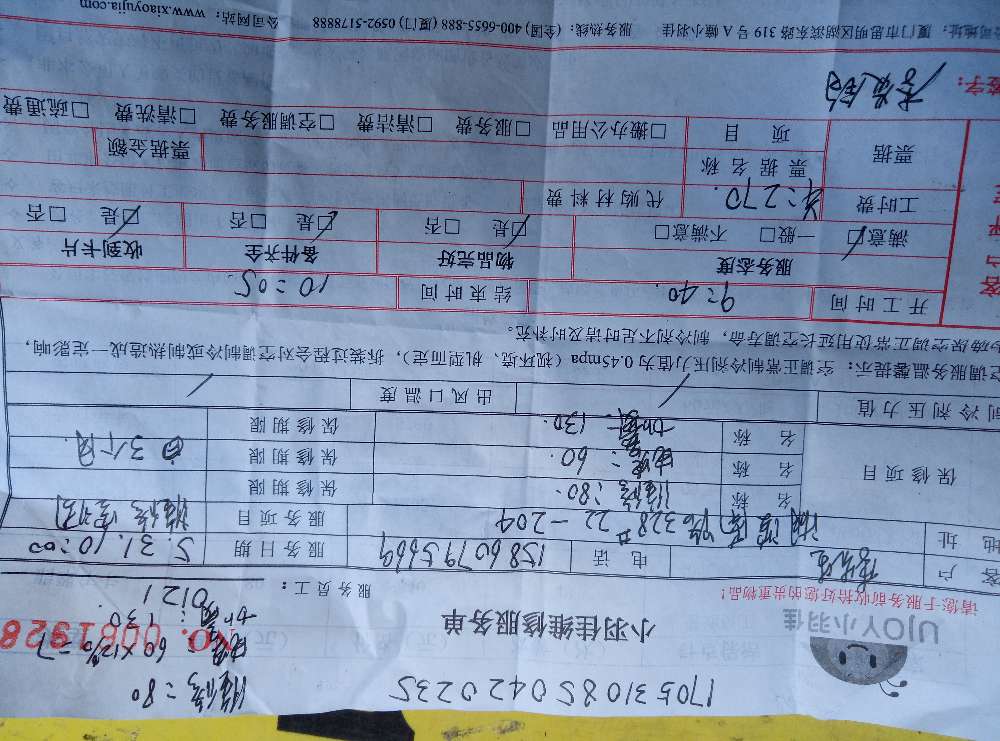 17053108504420235
维修：80
电容：60×12%=7
加氟：130
UJOY小羽佳
小羽佳维修服务单
NO. 0081928
请您于服务前收拾好您的贵重物品！
服务员工：0121
客户
电话 15860795669
服务日期 5.31.10:00
地址 328号22-204
服务项目 维修空调
保修项目
名称 维修：80. 保修期限
名称 电容：60 保修期限 3个月
名称 加氟：130. 保修期限
制冷剂压力值 / 出风口温度 /
空调服务温馨提示：空调正常制冷剂压力值为0.45mpa（视环境、机型而定），拆装过程会对空调制冷或制热造成一定影响，
为确保空调正常使用延长空调寿命，制冷剂不足时请及时补充。
开工时间 9:40. 结束时间 10:05
服务态度 物品完好 备件齐全 收到卡片
满意☑ 一般□ 不满意□ ☑是 □否 ☑是 □否 ☑是 □否
工时费 270. 代购材料费
票据 票据名称 票据金额
项目 □搬办公用品 □服务费 □清洁费 □空调服务费 □清洗费 □疏通费
签字：
公司地址：厦门市思明区湖滨东路319号A幢小羽佳 服务热线：(全国) 400-6655-888 (厦门) 0592-5178888 公司网站：www.xiaoyujia.com